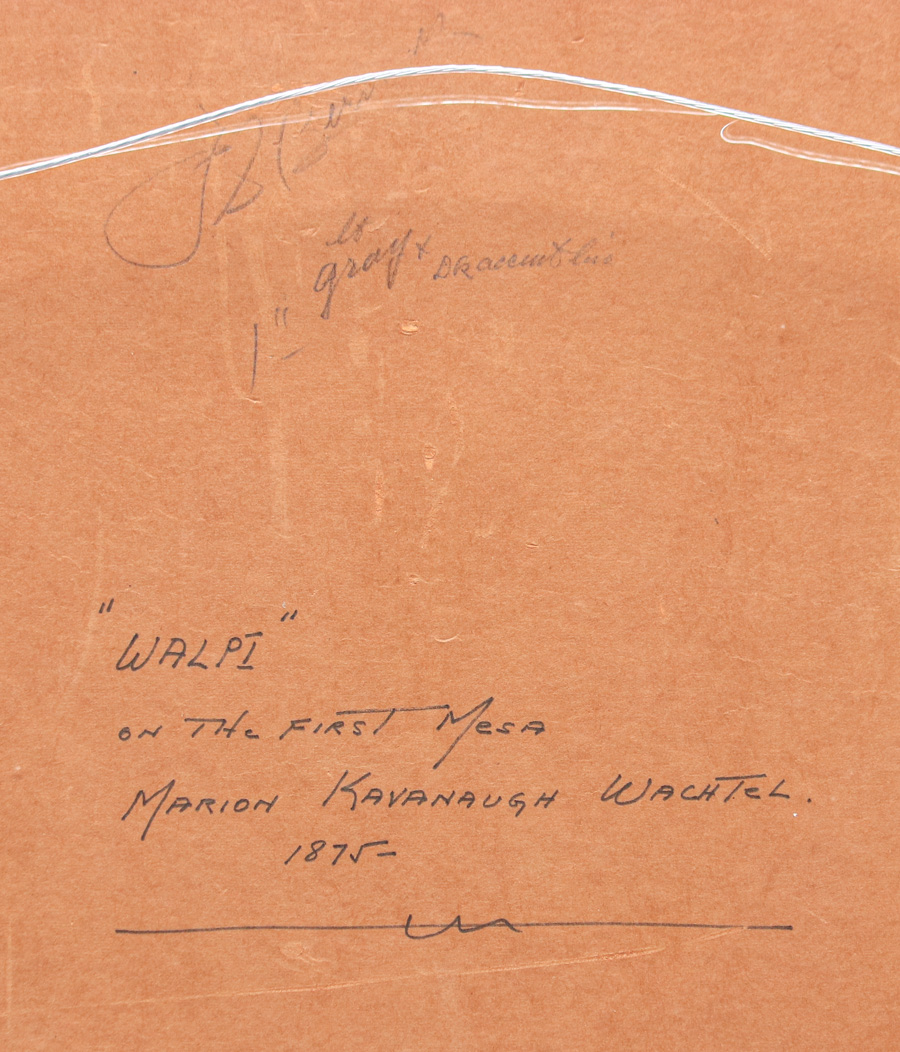 lt
gray + DK accent
1"
"WALPI"
ON THe FIRST MesA
MARION KAVANAUGH WACHTeL.
1875-